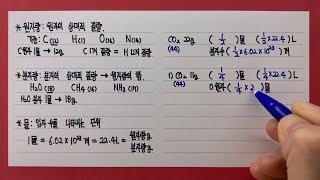 * 원자량: 원자의 상대적 질량
질량: C(12) H(1) O(16) N(14)
C원자 1몰 → 12g. C 1개 질량 = H 12개 질량
* 분자량: 분자의 상대적 질량 → 원자량의 합.
H₂O (18) CH₄ (16) NH₃ (17)
H₂O 분자 1몰 → 18g.
* 몰: 입자 수를 나타내는 단위
1몰 = 6.02×10²³개 = 22.4L = 원자량g. 분자량g.
CO₂ 22g (½)몰 (½×22.4)L
(44) 분자수 (½×6.02×10²³)개
1) CO₂ 11g (¼)몰 (¼×22.4)L
(44) O원자 (¼×2)몰